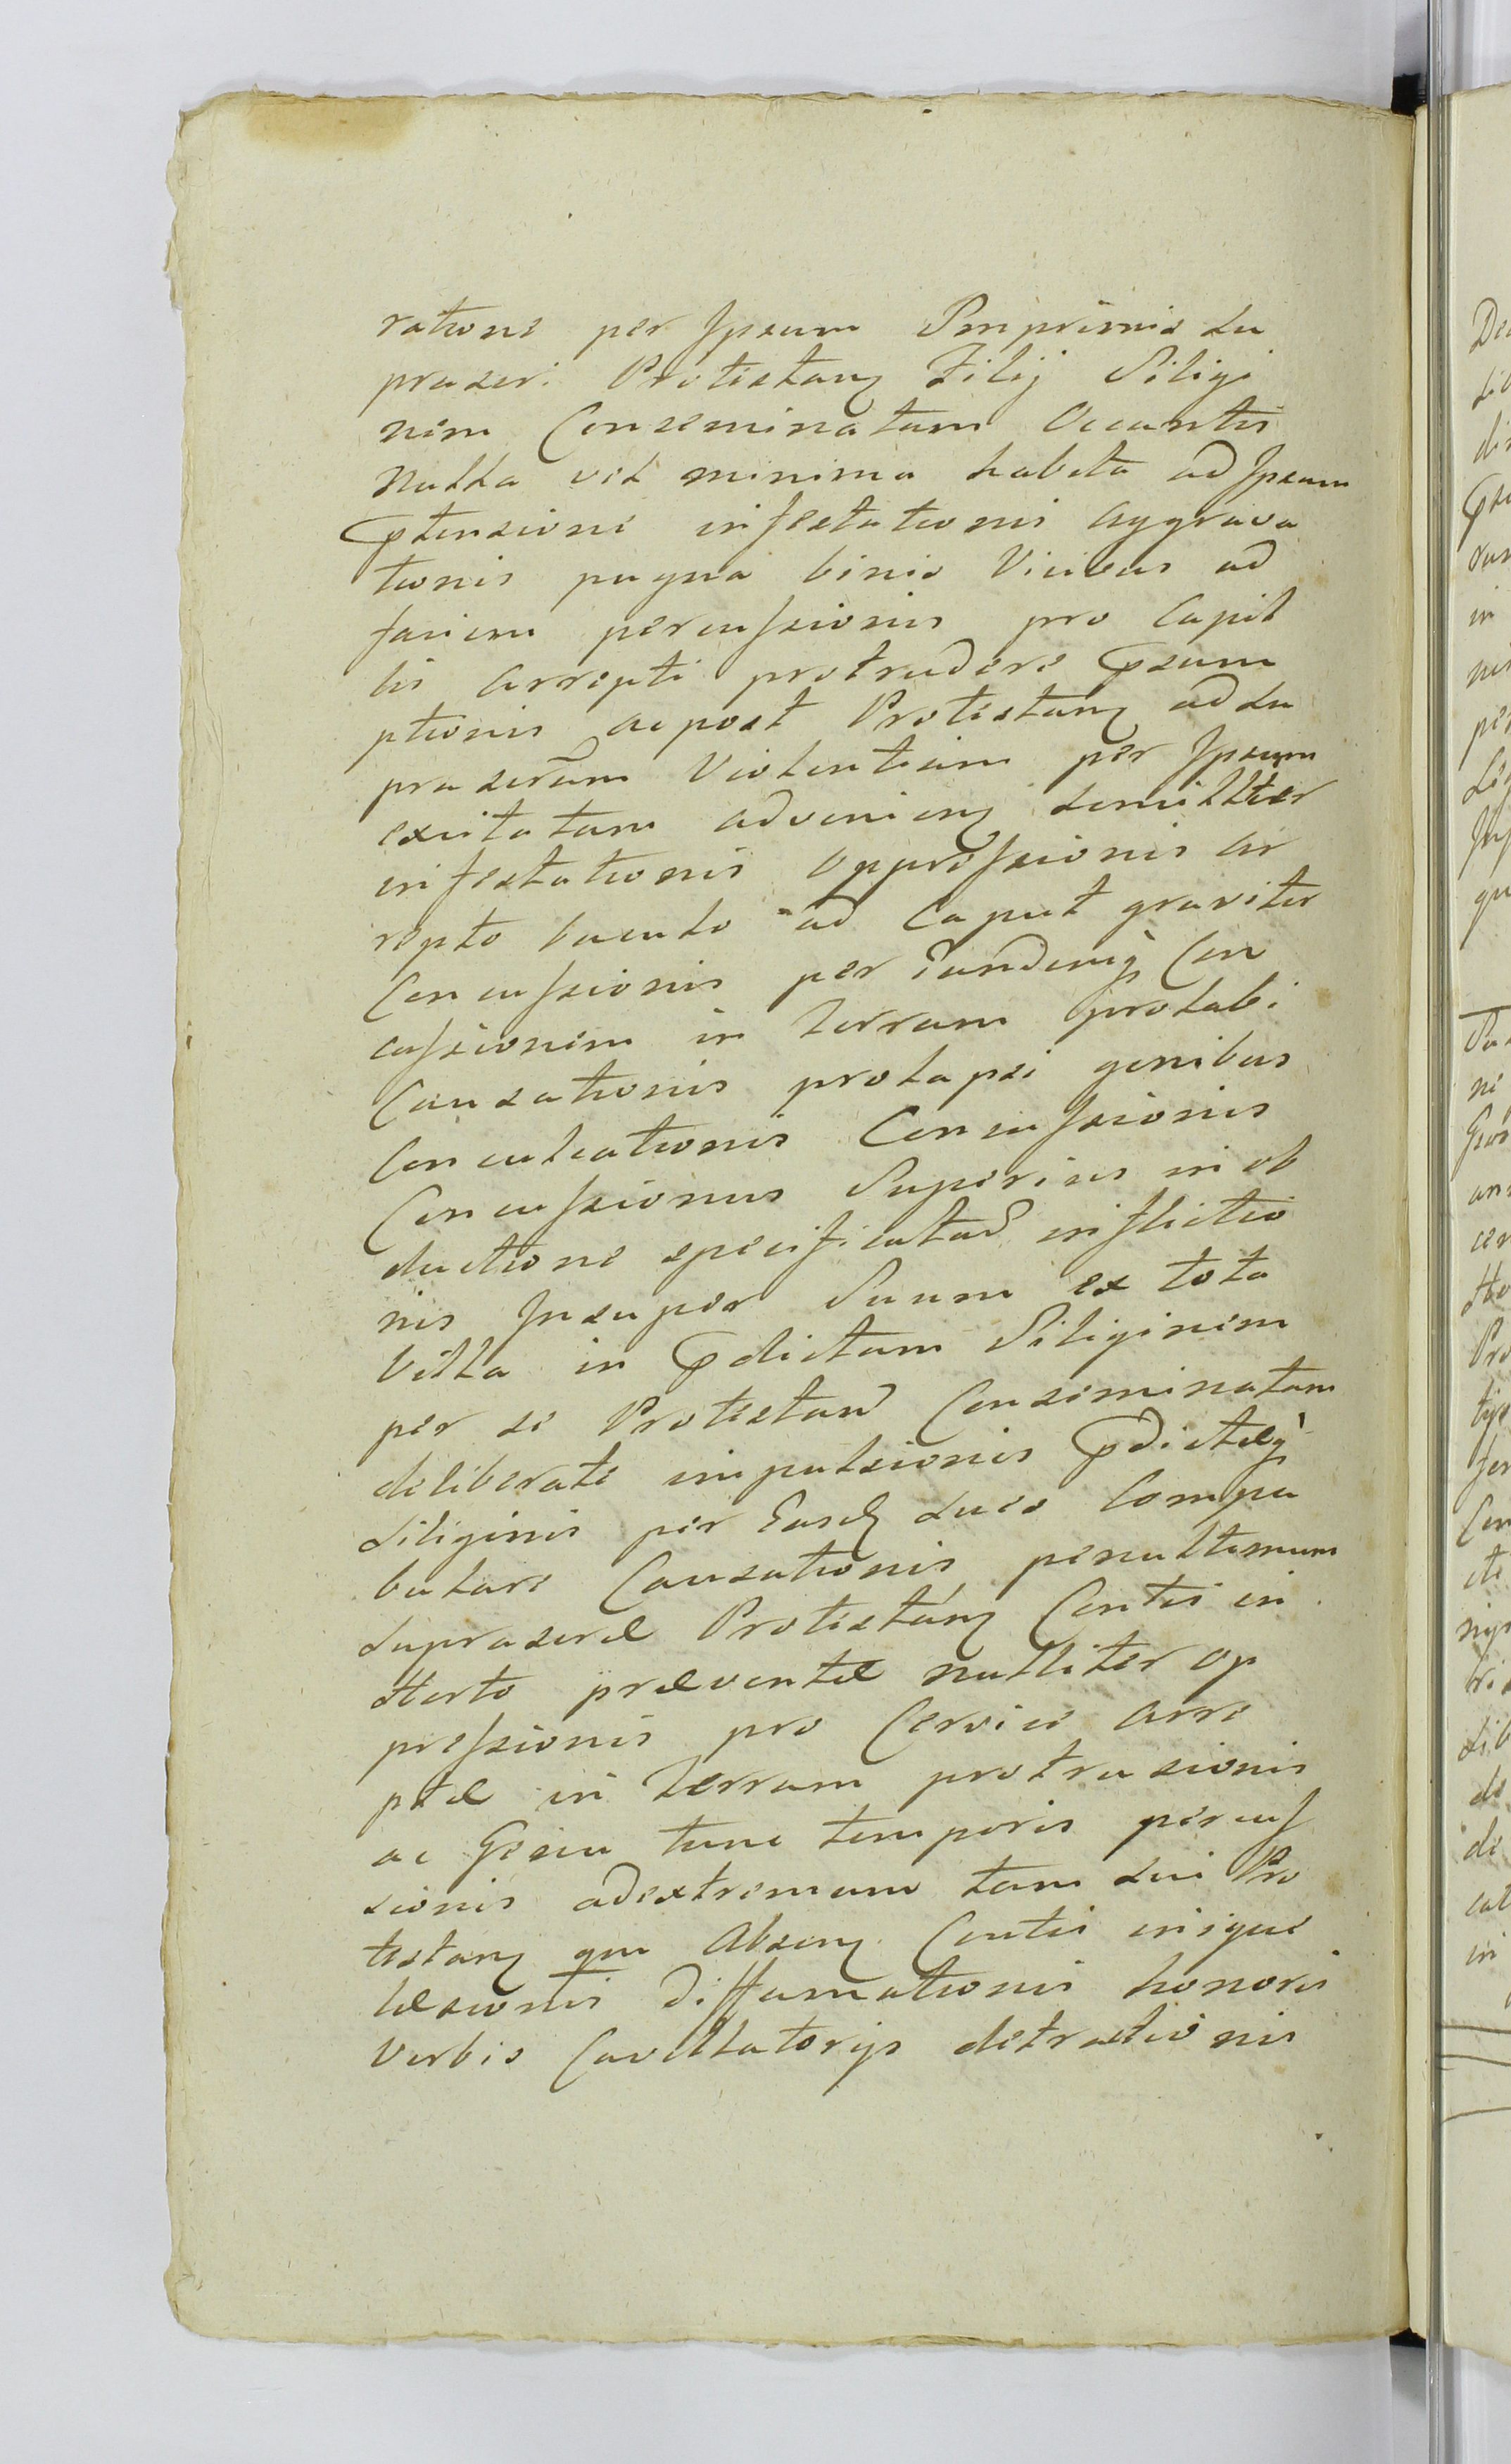 ratione per Ipsum Imprimis su
praseri. Protestanz Filij Siligi
nem Conseminatam Occantis
nulla vel minima habita ad Ipsum
Ptensione infestationis Aggrava
tionis pugna binis Vicibus ad
faciem percussionis pro Capil
lis Arrepti protrudere Psum
ptionis acpost Protestanz ad su
praserām Violentiam per Ipsum
excitatam advenienz similliter
infestationis oppressionis Ar
repto baculo ad Caput graviter
Concussionis per Eandemq̀ Con
cussionem in terram prolabi
Causationis prolapsi genibus
Conculcationis Concussionis
Concussionus Superius in ob
ductione specificatad inflictio
nis Insuper Suum ex tota
Villa in Pdictam Siliginem
per se Protestand Conseminatam
deliberate impulsionis Pdictæq̀
siliginis per Easdz sues Compa
bulare Causationis penultimum
supraseræ Protestanz Contis in
Horto præventæ nulliter op
pressionis pro Cervice Arre
ptæ in terram protrusionis
ac Gesiu tunc temporis percus
sionis adextremum tam sui Pro
testanz qm Absenz Contis inique
læsionis Diffamationis honoris
Verbis Cavillatorijs detractionis